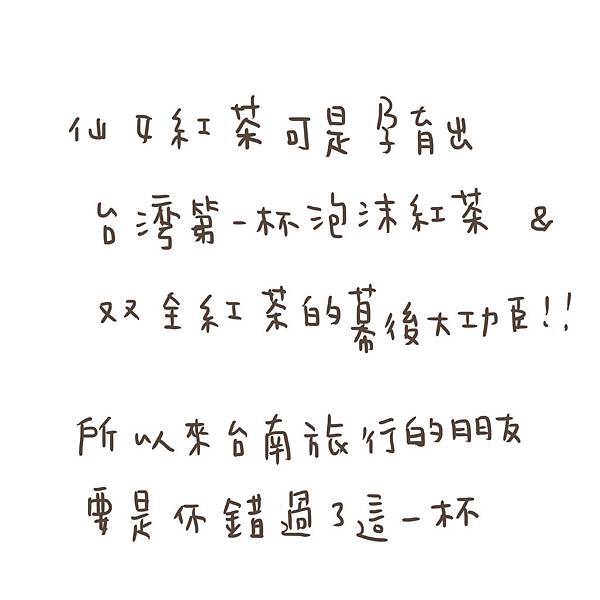 仙女紅茶可是孕育出
台湾第一杯泡沫紅茶 &
双全紅茶的幕後大功臣!!
所以來台南旅行的朋友
要是你錯過了這一杯